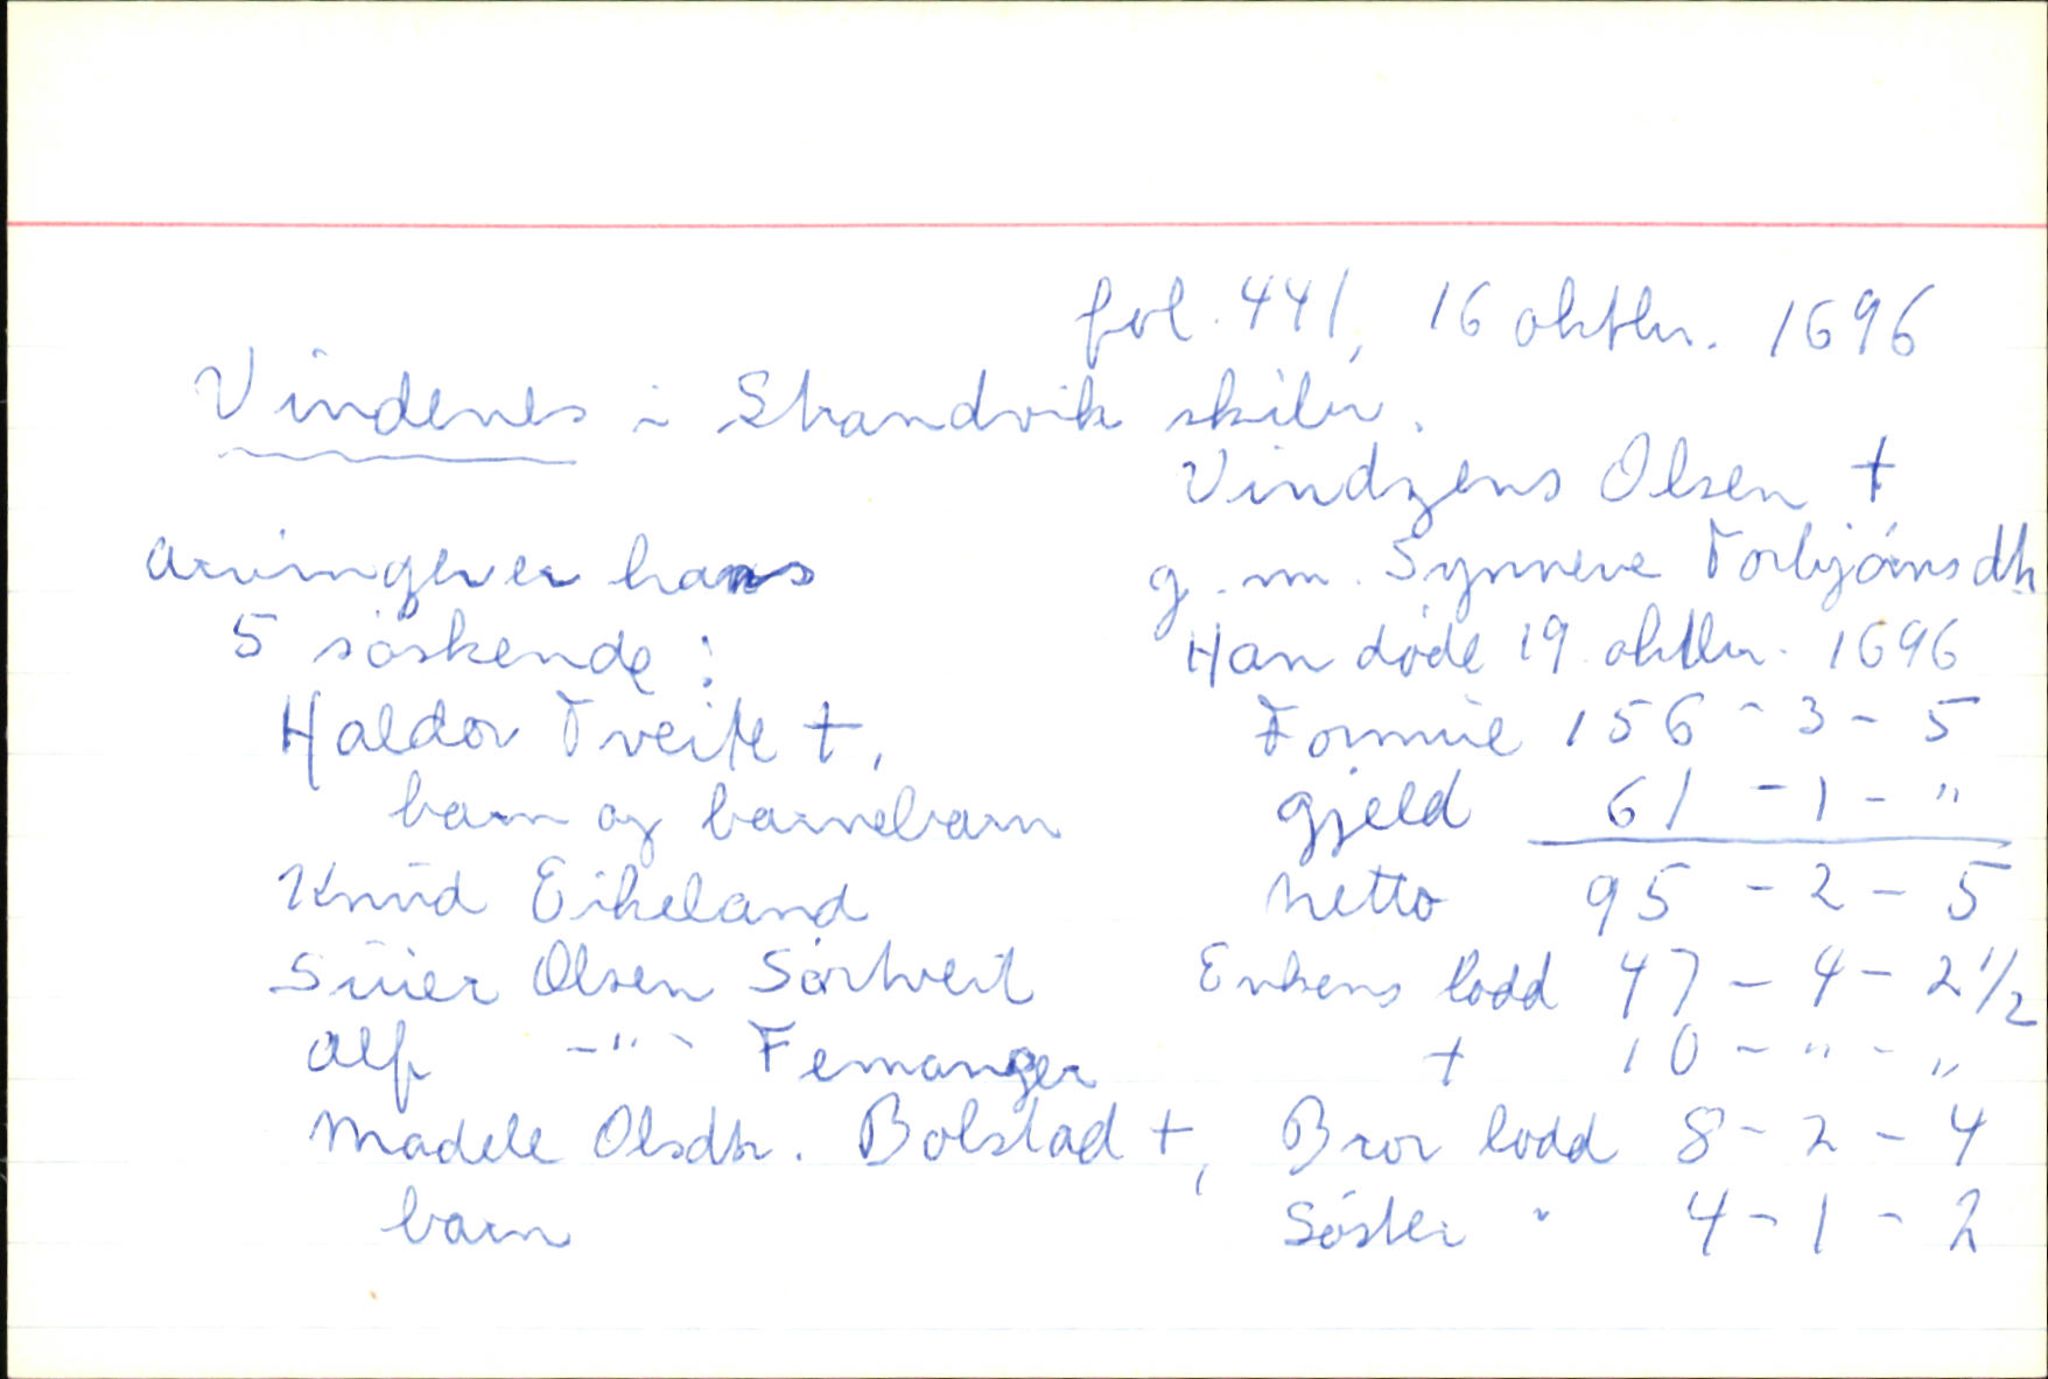 fol. 441, 16 oktbr. 1696
Vindenes i Strandvik skibr.
Vindzens Olsen †
g. m. Synneve Torbjörnsdtr.
Han döde 19. oktbr. 1696
Formue 156 - 3 - 5
gjeld 61 - 1 - "
netto 95 - 2 - 5
Enkens lodd 47 - 4 - 2 1/2
+ 10 - " - "
Bror lodd 8 - 2 - 4
Söster " 4 - 1 - 2
arvinger er hans
5 söskende:
Haldor Tveite †,
barn og barnebarn
Knud Eikeland
Siuer Olsen Sörtveit
Alf -"- Femanger
Madele Olsdtr. Bolstad †,
barn